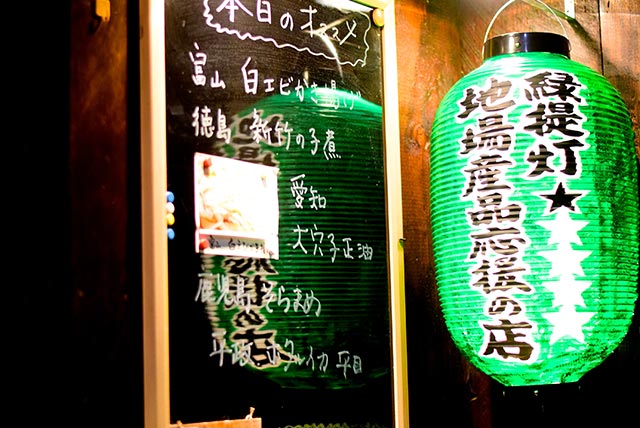 本日のオススメ
富山 白エビかき揚げ
徳島 新竹の子煮
愛知
大穴子正油
鹿児島 そらまめ
平政 ホタルイカ 平目
緑提灯
地場産品応援の店